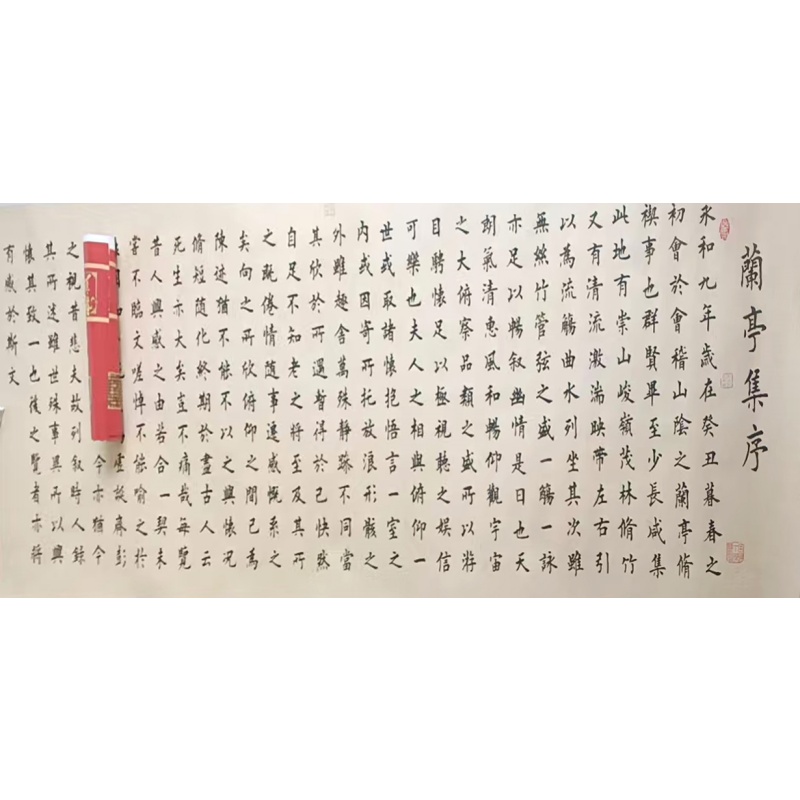 蘭亭集序
永和九年歲在癸丑暮春之
初會於會稽山陰之蘭亭脩
禊事也群賢畢至少長咸集
此地有崇山峻嶺茂林脩竹
又有清流激湍映帶左右引
以為流觴曲水列坐其次雖
無絲竹管弦之盛一觴一詠
亦足以暢叙幽情是日也天
朗氣清惠風和暢仰觀宇宙
之大俯察品類之盛所以游
目騁懷足以極視聽之娛信
可樂也夫人之相與俯仰一
世或取諸懷抱悟言一室之
內或因寄所托放浪形骸之
外雖趣舍萬殊靜躁不同當
其欣於所遇暫得於己快然
自足不知老之將至及其所
之既倦情隨事遷感慨系之
矣向之所欣俯仰之間已為
陳迹猶不能不以之興懷況
脩短隨化終期於盡古人云
死生亦大矣豈不痛哉每覽
昔人興感之由若合一契未
嘗不臨文嗟悼不能喻之於
虛誕齊彭
今亦猶今
之視昔悲夫故列叙時人錄
其所述雖世殊事異所以興
懷其致一也後之覽者亦將
有感於斯文